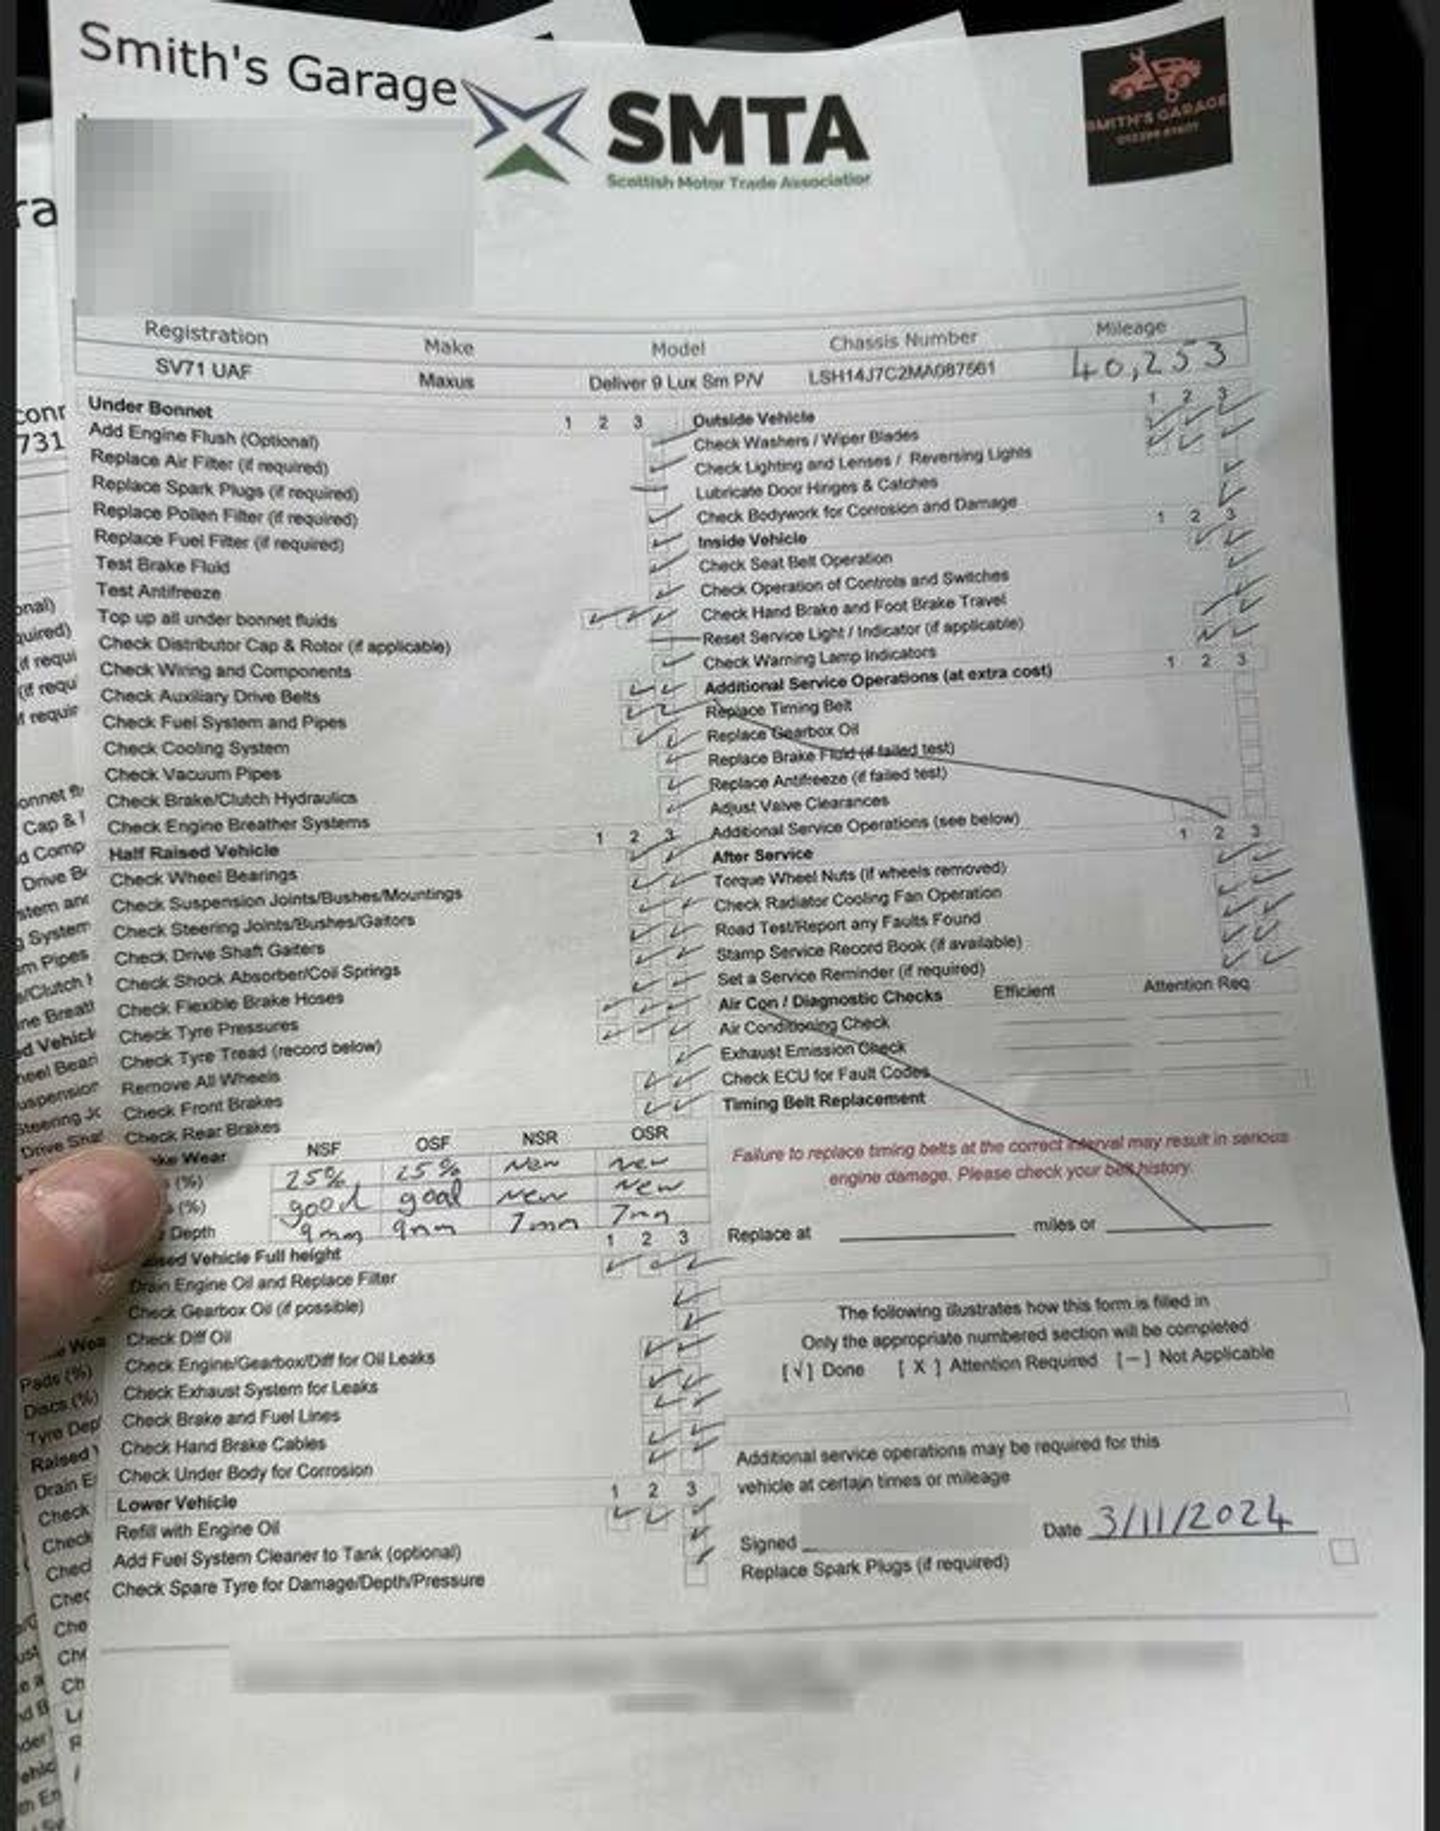 Smith's Garage
SMTA
Scottish Motor Trade Association
SMITH'S GARAGE
Registration Make Model Chassis Number Mileage
SV71 UAF Maxus Deliver 9 Lux Sm P/V LSH14J7C2MA087561 40,253
Under Bonnet 1 2 3
Add Engine Flush (Optional)
Replace Air Filter (if required)
Replace Spark Plugs (if required)
Replace Pollen Filter (if required)
Replace Fuel Filter (if required)
Test Brake Fluid
Test Antifreeze
Top up all under bonnet fluids
Check Distributor Cap & Rotor (if applicable)
Check Wiring and Components
Check Auxiliary Drive Belts
Check Fuel System and Pipes
Check Cooling System
Check Vacuum Pipes
Check Brake/Clutch Hydraulics
Check Engine Breather Systems
Half Raised Vehicle 1 2 3
Check Wheel Bearings
Check Suspension Joints/Bushes/Mountings
Check Steering Joints/Bushes/Gaitors
Check Drive Shaft Gaiters
Check Shock Absorber/Coil Springs
Check Flexible Brake Hoses
Check Tyre Pressures
Check Tyre Tread (record below)
Remove All Wheels
Check Front Brakes
Check Rear Brakes
ake Wear NSF OSF NSR OSR
(%) 25% 25% New new
(%) good goal New New
Depth 9mm 9mm 7mm 7mm
ised Vehicle Full height 1 2 3
Drain Engine Oil and Replace Filter
Check Gearbox Oil (if possible)
Check Diff Oil
Check Engine/Gearbox/Diff for Oil Leaks
Check Exhaust System for Leaks
Check Brake and Fuel Lines
Check Hand Brake Cables
Check Under Body for Corrosion
Lower Vehicle 1 2 3
Refill with Engine Oil
Add Fuel System Cleaner to Tank (optional)
Check Spare Tyre for Damage/Depth/Pressure
Outside Vehicle 1 2 3
Check Washers / Wiper Blades
Check Lighting and Lenses / Reversing Lights
Lubricate Door Hinges & Catches
Check Bodywork for Corrosion and Damage
Inside Vehicle 1 2 3
Check Seat Belt Operation
Check Operation of Controls and Switches
Check Hand Brake and Foot Brake Travel
Reset Service Light / Indicator (if applicable)
Check Warning Lamp Indicators
Additional Service Operations (at extra cost) 1 2 3
Replace Timing Belt
Replace Gearbox Oil
Replace Brake Fluid (if failed test)
Replace Antifreeze (if failed test)
Adjust Valve Clearances
Additional Service Operations (see below)
After Service 1 2 3
Torque Wheel Nuts (if wheels removed)
Check Radiator Cooling Fan Operation
Road Test/Report any Faults Found
Stamp Service Record Book (if available)
Set a Service Reminder (if required)
Air Con / Diagnostic Checks Efficient Attention Req
Air Conditioning Check
Exhaust Emission Check
Check ECU for Fault Codes
Timing Belt Replacement
Failure to replace timing belts at the correct interval may result in serious
engine damage. Please check your belt history.
Replace at miles or
The following illustrates how this form is filled in
Only the appropriate numbered section will be completed
[√] Done [ X ] Attention Required [–] Not Applicable
Additional service operations may be required for this
vehicle at certain times or mileage
Signed Date 3/11/2024
Replace Spark Plugs (if required)